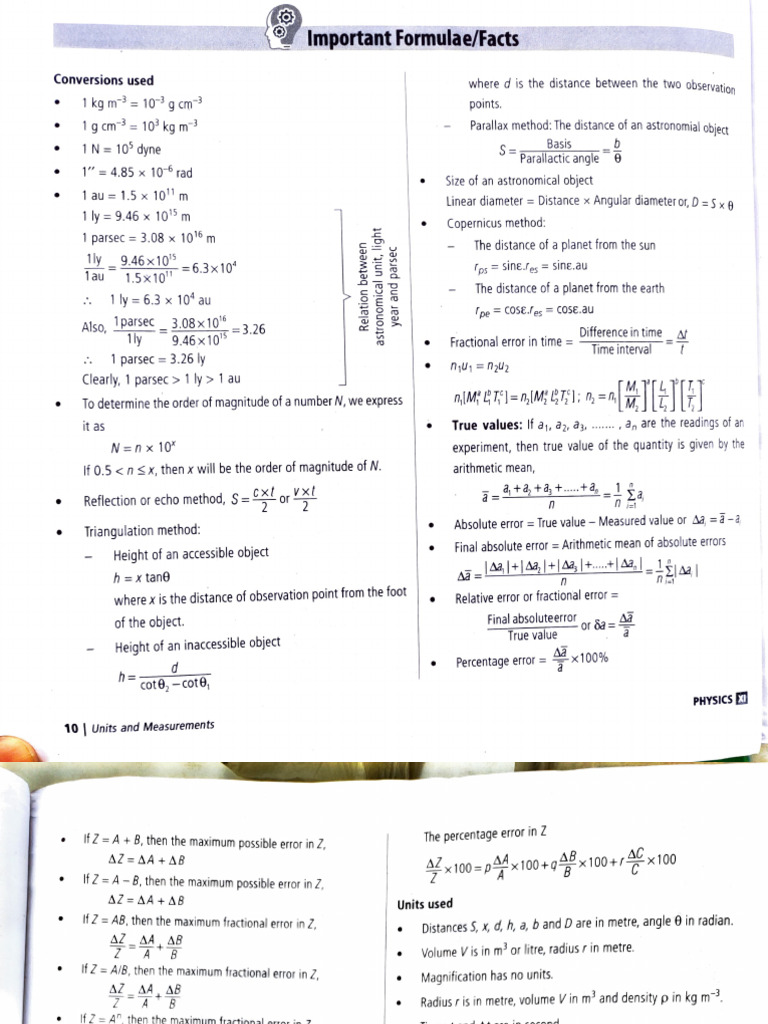 Important Formulae/Facts
Conversions used
• 1 kg m⁻³ = 10⁻³ g cm⁻³
• 1 g cm⁻³ = 10³ kg m⁻³
• 1 N = 10⁵ dyne
• 1″ = 4.85 × 10⁻⁶ rad
• 1 au = 1.5 × 10¹¹ m
1 ly = 9.46 × 10¹⁵ m
1 parsec = 3.08 × 10¹⁶ m
1 ly / 1 au = 9.46×10¹⁵ / 1.5×10¹¹ = 6.3×10⁴
∴ 1 ly = 6.3 × 10⁴ au
Also, 1 parsec / 1 ly = 3.08×10¹⁶ / 9.46×10¹⁵ = 3.26
∴ 1 parsec = 3.26 ly
Clearly, 1 parsec > 1 ly > 1 au
Relation between
astronomical unit, light
year and parsec
• To determine the order of magnitude of a number N, we express
it as
N = n × 10ˣ
If 0.5 < n ≤ x, then x will be the order of magnitude of N.
• Reflection or echo method, S = c×t / 2 or v×t / 2
• Triangulation method:
– Height of an accessible object
h = x tanθ
where x is the distance of observation point from the foot
of the object.
– Height of an inaccessible object
h = d / cotθ₂ – cotθ₁
where d is the distance between the two observation
points.
– Parallax method: The distance of an astronomial object
S = Basis / Parallactic angle = b / θ
• Size of an astronomical object
Linear diameter = Distance × Angular diameter or, D = S × θ
• Copernicus method:
– The distance of a planet from the sun
r_ps = sinε.r_es = sinε.au
– The distance of a planet from the earth
r_pe = cosε.r_es = cosε.au
• Fractional error in time = Difference in time / Time interval = Δt / t
• n₁u₁ = n₂u₂
n₁[M₁ᵃ L₁ᵇ T₁ᶜ] = n₂[M₂ᵃ L₂ᵇ T₂ᶜ] ; n₂ = n₁ [M₁/M₂]ᵃ [L₁/L₂]ᵇ [T₁/T₂]ᶜ
• True values: If a₁, a₂, a₃, ....... , aₙ are the readings of an
experiment, then true value of the quantity is given by the
arithmetic mean,
ā = a₁ + a₂ + a₃ + ..... + aₙ / n = 1/n Σⁿᵢ₌₁ aᵢ
• Absolute error = True value – Measured value or Δaᵢ = ā – aᵢ
• Final absolute error = Arithmetic mean of absolute errors
Δā = |Δa₁| + |Δa₂| + |Δa₃| + ..... + |Δaₙ| / n = 1/n Σⁿᵢ₌₁ |Δaᵢ|
• Relative error or fractional error =
Final absolute error / True value or δa = Δā / ā
• Percentage error = Δā / ā ×100%
PHYSICS XI
10 | Units and Measurements
• If Z = A + B, then the maximum possible error in Z,
ΔZ = ΔA + ΔB
• If Z = A – B, then the maximum possible error in Z,
ΔZ = ΔA + ΔB
• If Z = AB, then the maximum fractional error in Z,
ΔZ/Z = ΔA/A + ΔB/B
• If Z = A/B, then the maximum fractional error in Z,
ΔZ/Z = ΔA/A + ΔB/B
• If Z = Aⁿ, then the maximum fractional error in Z,
The percentage error in Z
ΔZ/Z ×100 = p ΔA/A ×100 + q ΔB/B ×100 + r ΔC/C ×100
Units used
• Distances S, x, d, h, a, b and D are in metre, angle θ in radian.
• Volume V is in m³ or litre, radius r in metre.
• Magnification has no units.
• Radius r is in metre, volume V in m³ and density ρ in kg m⁻³.